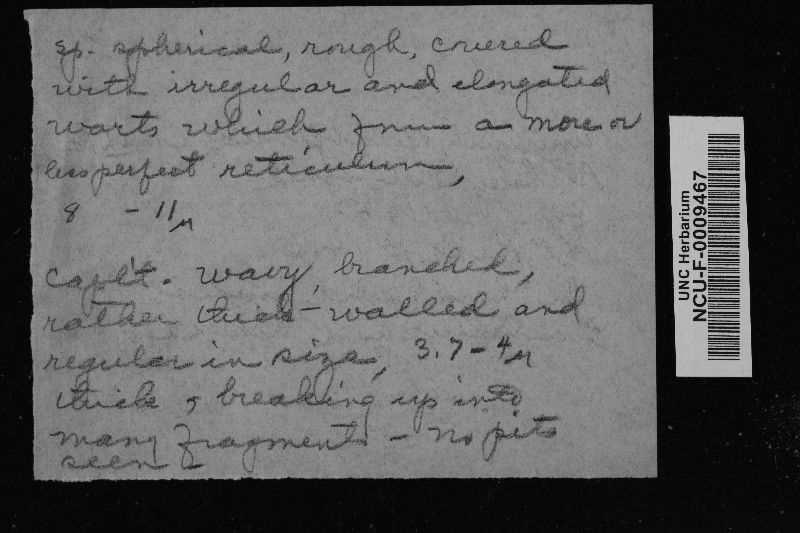 Sp. spherical, rough, covered
with irregular and elongated
warts which form a more or
less perfect reticulum,
8 - 11µ
Caplt. wavy, branched,
rather thick-walled and
regular in size, 3.7-4µ
thick, breaking up into
many fragments - No pits
seen -
UNC Herbarium
NCU-F-0009467